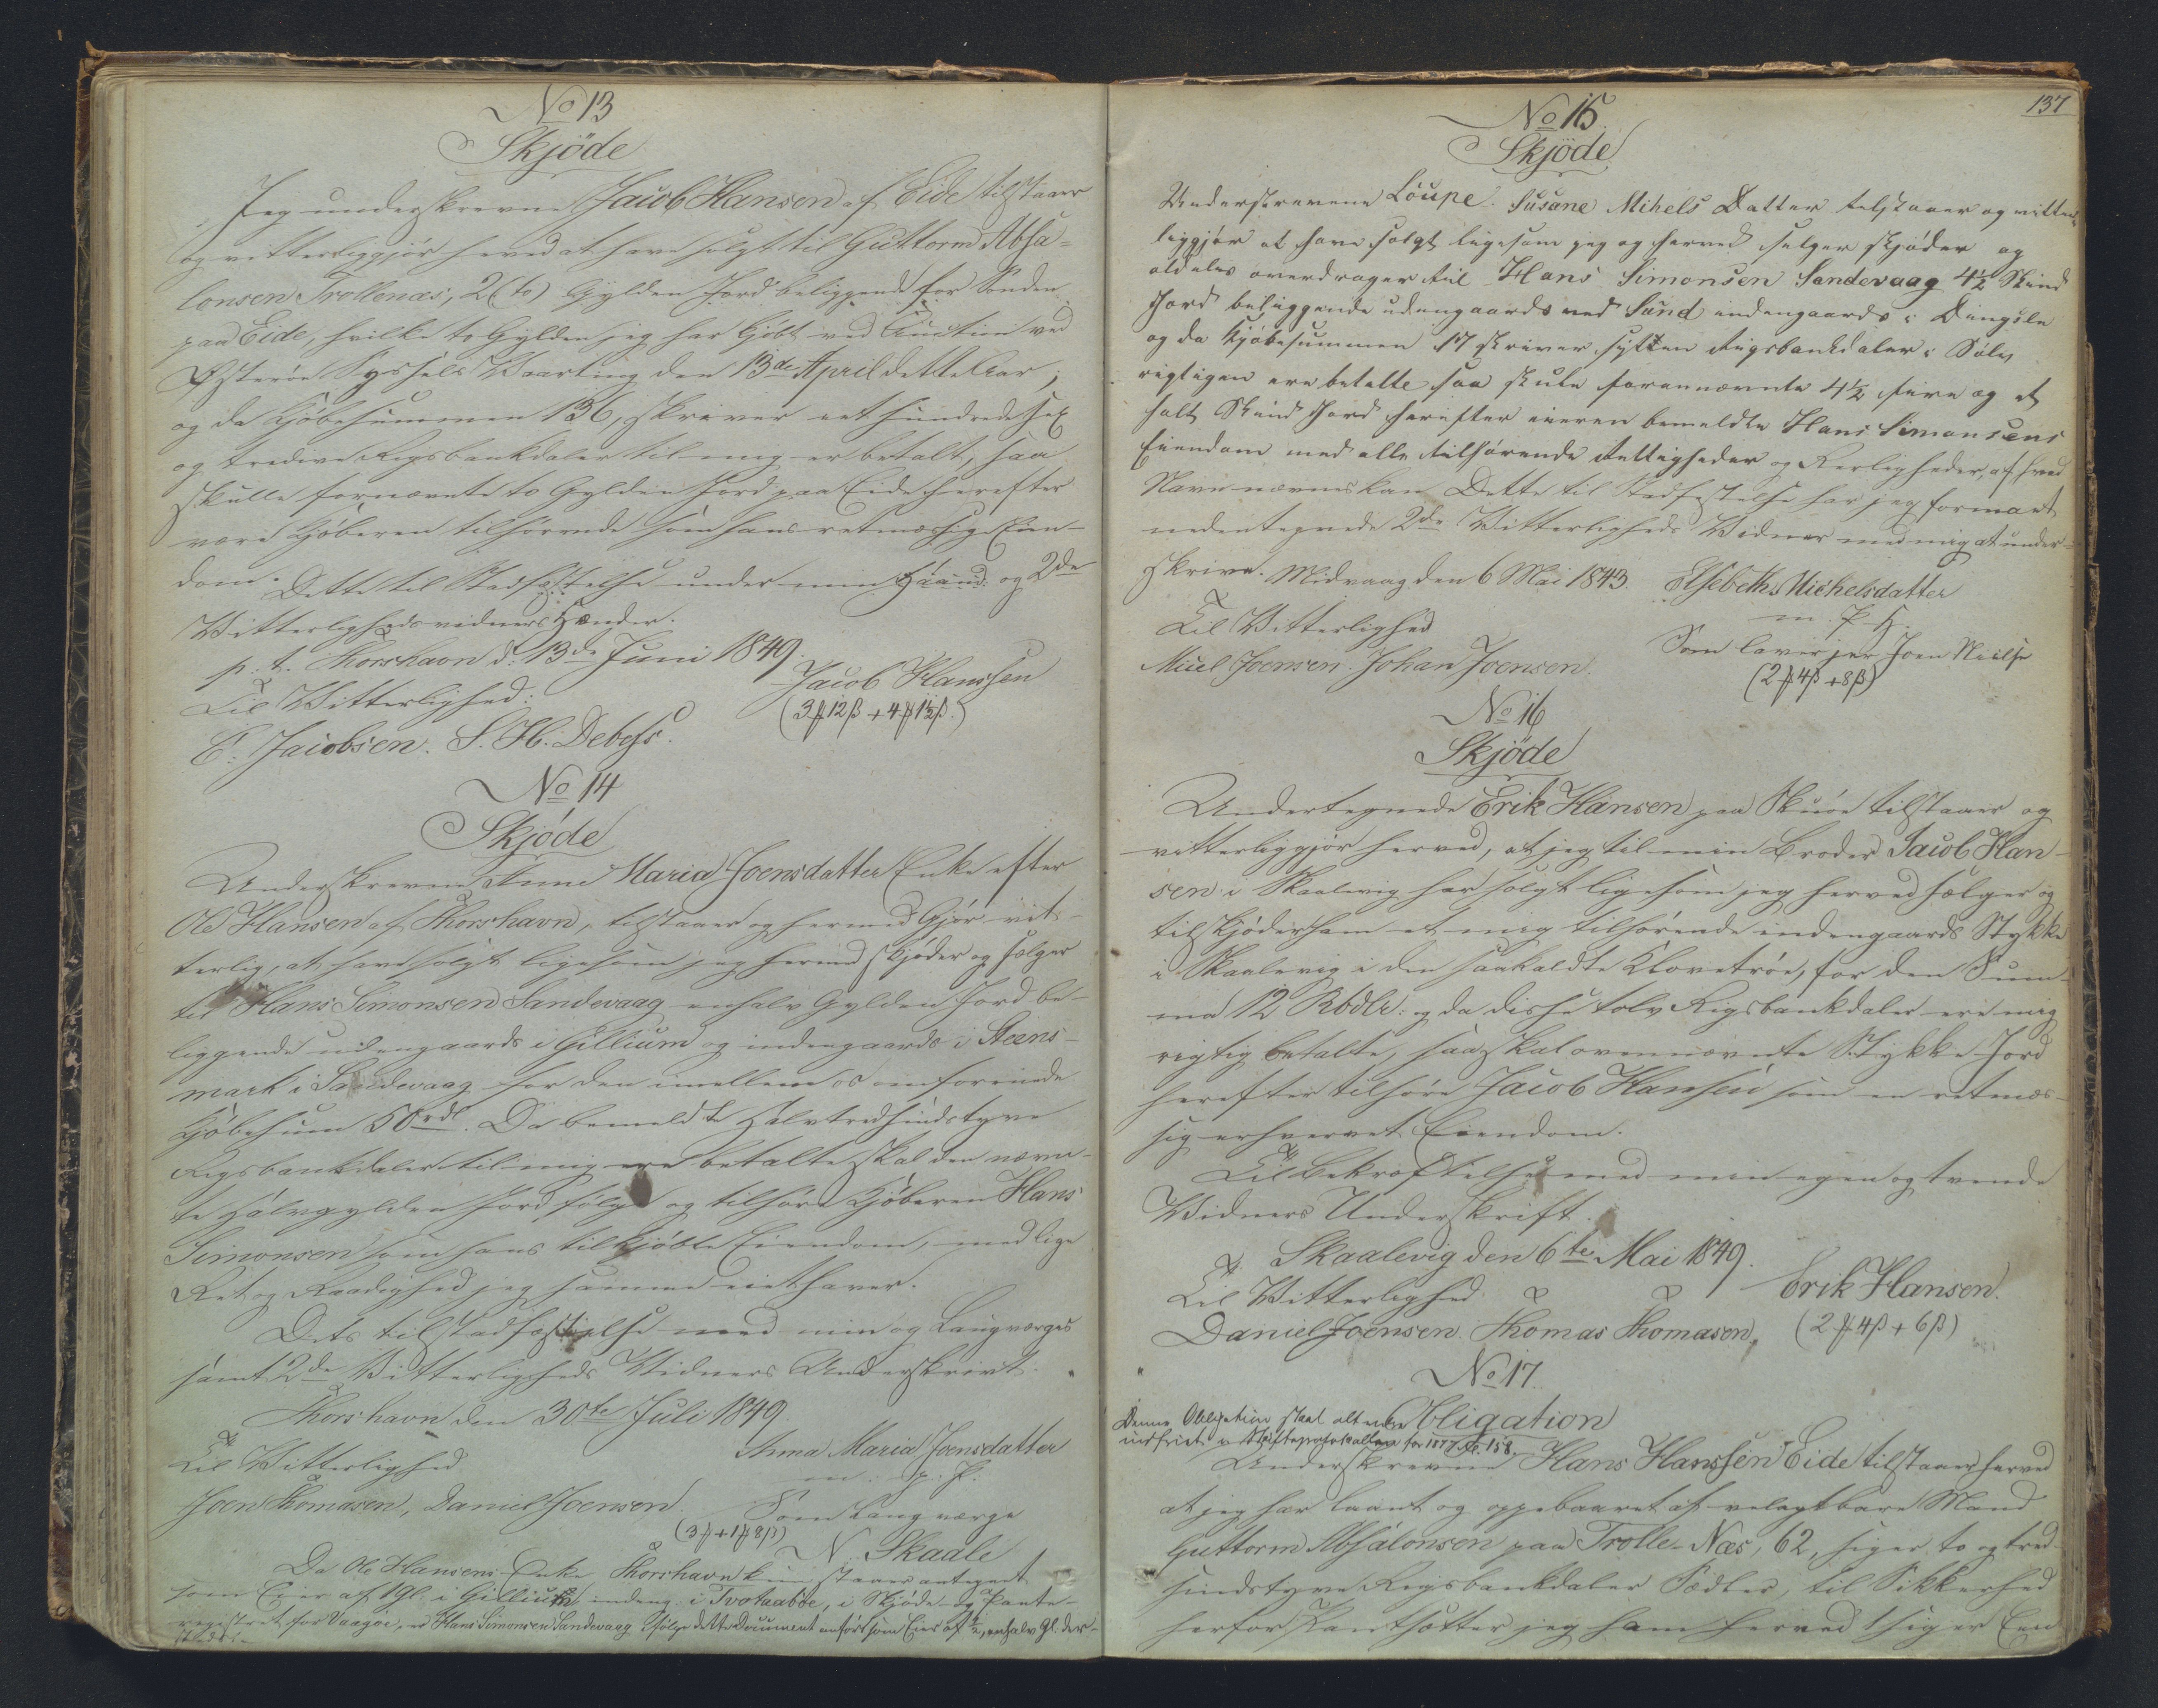 No 13
Skjöde
Jeg underskrevne Jacob Hansen af Eide tilstaaer
og vitterliggjör herved at have solgt til Guttorm Absa=
lonsen Trollenæs, 2 (to) Gylden Jord beliggend for Sönden
paa Eide, hvilke to Gylden jeg har kjöbt ved Auction ved
Østeröe Syssels Vaarting den 13de April dette Aar;
og da Kjöbesummen 136, skriver eet hundrede sex
og tredive Rigsbankdaler til mig er betalt, saa
skulle fornævnte to Gylden Jord paa Eide herefter
være Kjöberen tilhörende som hans retmæssige Eien-
dom. Dette til Stadfæstelse under min Haand og 2de
Vitterlighedsvidners Hænder.
p. t. Thorshavn d. 13de Juni 1849.
Til Vitterlighed: Jacob Hanssen
E. Jacobsen. S. H. Debess. (3 12ß + 4 1½ß.)
No 14
Skjöde
Underskrevne Anne Maria Joensdatter Enke efter
Ole Hansen af Thorshavn, tilstaaer og hermed Gjör vit-
terlig, at have solgt ligesom jeg hermed skjöder og sælger
til Hans Simonsen Sandevaag en halv Gylden Jord be-
liggende udengaards i Gillium og indengaards i Steens-
mark i Sandevaag for den imellem os omforenede
Kjöbesum 50 rdl. Da bemeldte halvtredsindstyve
Rigsbankdaler til mig ere betalte skal den nævn-
te halvgylden Jord fölge og tilhöre Kjöberen Hans
Simonsen som hans tilkjöbte Eiendom, med lige
Ret og Raadighed jeg samme eiet haver.
Dets til stadfæstelse med min og Laugværges
samt 2de Vitterligheds Vidners Underskrivt.
Thorshavn den 30te Juli 1849.
Til Vitterlighed Anna Maria Joensdatter
m. p. P.
Joen Thomasen, Daniel Joensen. Som Laugværge
(3 + 1 8ß) N. Skaale
Da Ole Hansens Enke Thorshavn kun staaer antegnet
som Eier af 1 Gl. i Gillium indeng. i Tvotaaböe, i Skjöde- og Pante-
registret for Vaagöe, er Hans Simonsen Sandevaag ifölge dette Document anfört som Eier af ½, en halv Gl. der-
137
No 15
Skjöde
Underskrevene Löupe. Susane Mihels Datter telstaaer og vitter=
liggjör at have solgt ligesom jeg og herved selger skjöder og
aldeles overdrager til Hans Simonsen Sandevaag 4½ Skind
Jord beliggende udengaards ved Sund indengaards i Dungsle
og da Kjöbesummen 17 skriver sytten Rigsbankdaler i Sölv
rigtigen ere betalte saa skule forannævnte 4½ fire og et
halt Skind Jord herefter være bemeldte Hans Simonsens
Eiendom med alle tilhörende Rettigheder og Herligheder, af hvad
Navn nævnes kan. Dette til Stadfæstelse har jeg formaaet
nedentegnede 2de Vitterligheds Vidner med mig at under-
skrive. Midvaag den 6 Mai 1843. Elsebeth Michelsdatter
Til Vitterlighed m. P. H.
Micel Joensen. Johan Joensen. Som laverjer Joen Nielse
(2 4ß + 8ß)
No 16
Skjöde
Undertegnede Erik Hansen paa Skuöe tilstaaer og
vitterliggjör herved, at jeg til min Broder Jacob Han-
sen i Skaalevig har solgt ligesom jeg herved sælger og
tilskjöder ham et mig tilhörende indengaards Stykke
i Skaalevig i den saakaldte Klovetröe, for den Sum-
ma 12 Rbdlr: og da disse tolv Rigsbankdaler ere mig
rigtig betalte, saa skal ovennævnte Stykke Jord
herefter tilhöre Jacob Hansen som en retmæs-
sig erhvervet Eiendom.
Til Bekræftelse med min egen og tvende
Vidners Underskrift.
Skaalevig den 6te Mai 1849.
Til Vitterlighed Erik Hansen.
Daniel Joensen. Thomas Thomasen. (2 4ß + 6ß)
No 17.
Obligation
Denne Obligation skal alt være
indfriet v. Skifteprotokollen for 1877 fo. 158.
Underskrevne Hans Hanssen Eide tilstaaer herved
at jeg har laant og oppebaaret af velagtbare Mand
Guttorm Absalonsen paa Trolle-Næs, 62, siger to og tred-
sindstyve Rigsbankdaler Sedler, til Sikkerhed
herfor Pantsætter jeg ham herved 1 siger Een